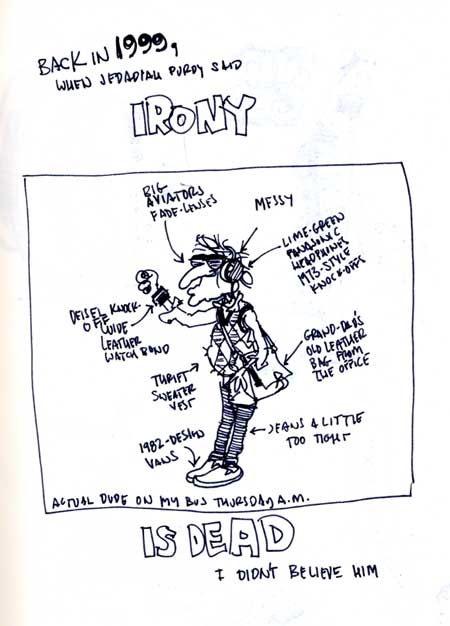 BACK IN 1999,
WHEN JEDADIAH PURDY SAID
IRONY
BIG
AVIATORS
FADE-LENSES
MESSY
LIME-GREEN
PANASONIC
HEADPHONES
MT3-STYLE
KNOCK-OFFS
DEISEL KNOCK-
OFF
WIDE
LEATHER
WATCH BAND
GRAND-DAD'S
OLD LEATHER
BAG FROM
THE OFFICE
THRIFT
SWEATER
VEST
JEANS A LITTLE
TOO TIGHT
1982-DESIGN
VANS
ACTUAL DUDE ON MY BUS THURSDAY A.M.
IS DEAD
I DIDN'T BELIEVE HIM